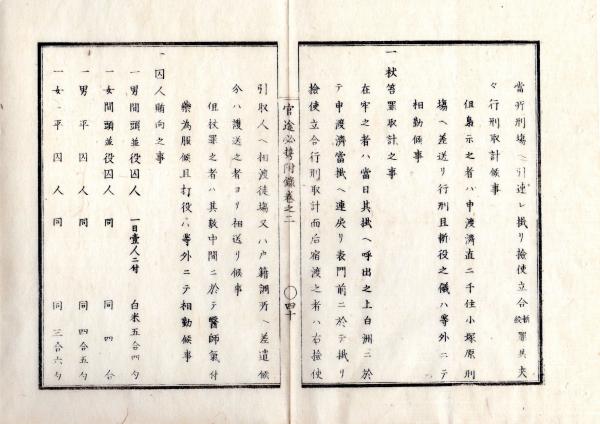 當所刑場ヘ引連レ掛リ撿使立合斬絞罪其夫
々行刑取計候事
但梟示之者ハ申渡濟直ニ千住小塚原刑
塲ヘ差送リ行刑且斬役之儀ハ等外ニテ
相勤候事
一 杖笞罪取計之事
在牢之者ハ當日其掛ヘ呼出之上白洲ニ於
テ申渡濟當掛ヘ連戻リ表門前ニ於テ掛リ
撿使立合行刑取計而后宿渡之者ハ右撿使
官途必携附錄卷之二 〇四十
引取人ヘ相渡徒塲又ハ戸籍調所ヘ差遣候
分ハ護送之者ヨリ相送リ候事
但杖罪之者ハ其數中間ニ於テ醫師氣付
藥為服候且打役ハ等外ニテ相勤候事
一 囚人賄向之事
一男間頭並役囚人 一日壹人ニ付 白米五合四勺
一女間頭並役囚人 同 同 四合
一男平囚人 同 同 四合五勺
一女平囚人 同 同 三合六勺